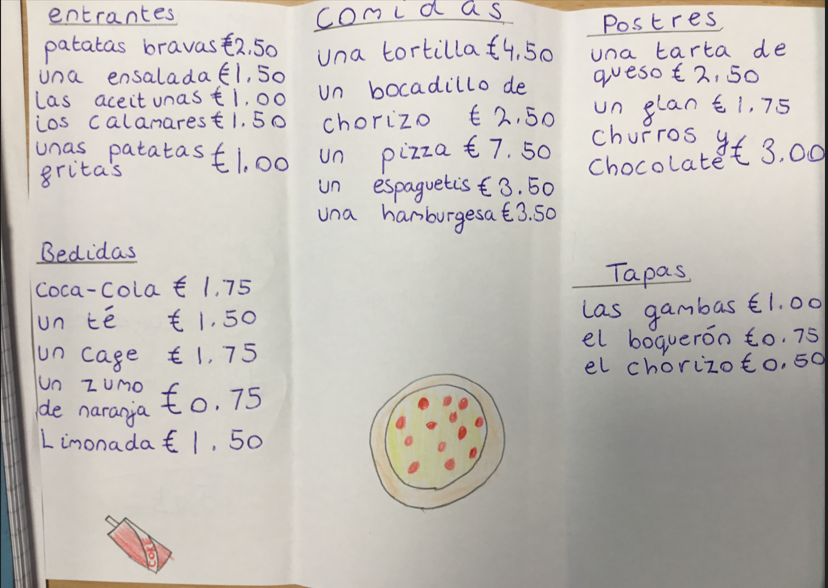 entrantes
patatas bravas €2.50
una ensalada €1.50
Las aceitunas €1.00
Los calamares €1.50
unas patatas
gritas €1.00
Bedidas
Coca-Cola € 1.75
un té € 1.50
un cage € 1.75
un zumo
de naranja €0.75
Limonada € 1.50
COLA
Comidas
una tortilla €4.50
un bocadillo de
chorizo € 2.50
un pizza € 7.50
un espaguetis € 3.50
una hamburgesa €3.50
Postres
una tarta de
queso € 2.50
un glan € 1.75
churros y
chocolate € 3.00
Tapas
las gambas €1.00
el boquerón €0.75
el chorizo €0.50